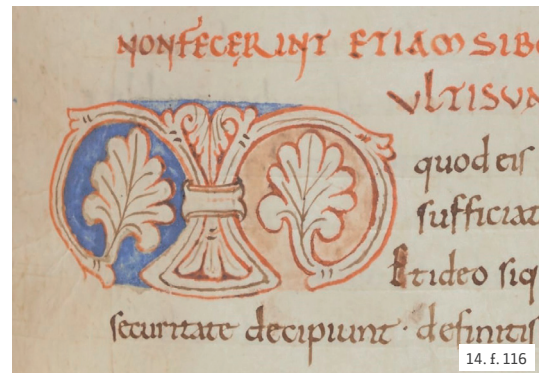 NONFECERINT ETIAM SIB
quod eis
sufficiat
Et ideo siq
securitate decipiunt · definitis
14. f. 116